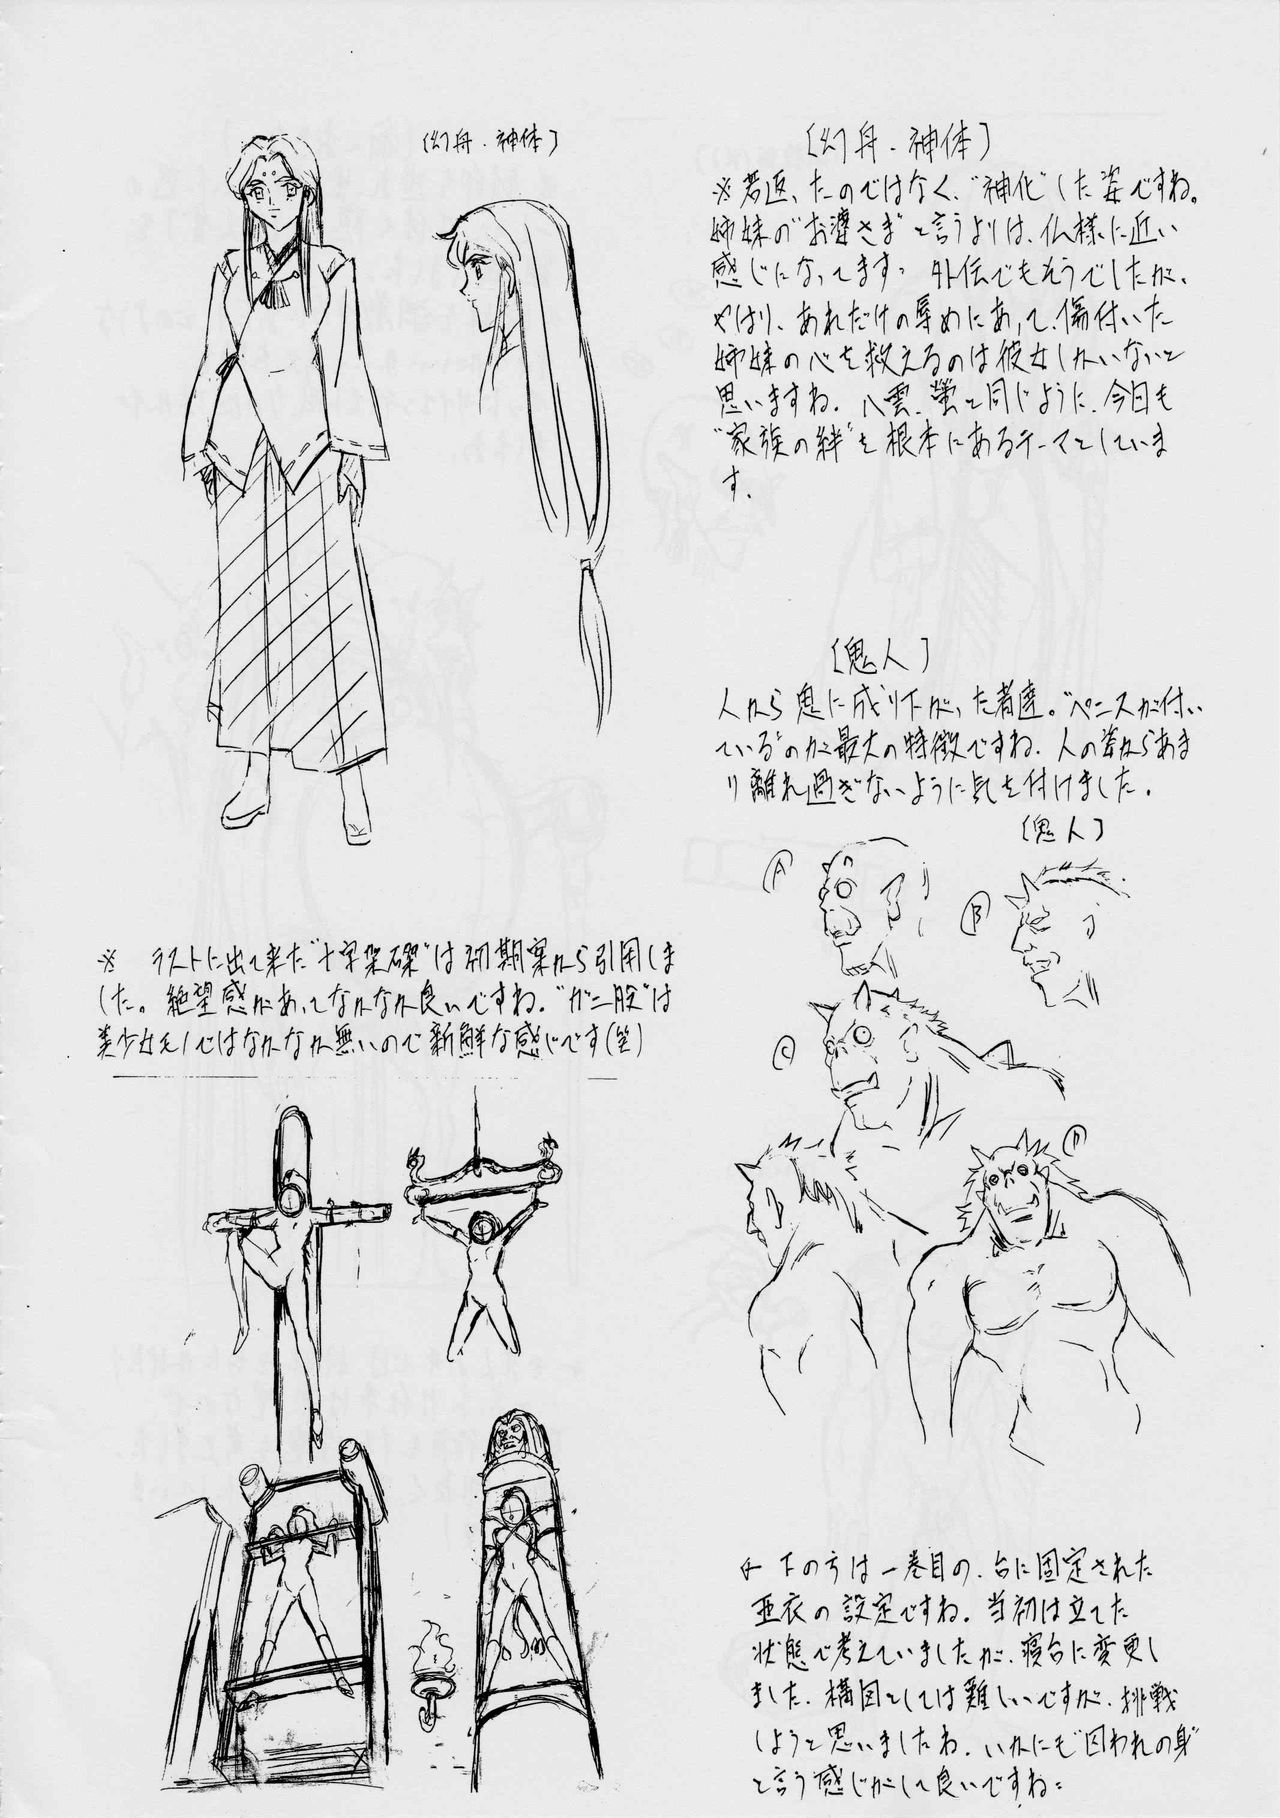 〔幻舟・神体〕
〔幻舟・神体〕
※若返ったのではなく、"神化"した姿ですね。
姉妹の"お婆さま"と言うよりは、仏様に近い
感じになってます。外伝でもそうでしたが、
やはり、あれだけの辱めにあって、傷付いた
姉妹の心を救えるのは彼女しかいないと
思いますね。八雲、蛍と同じように、今日も
"家族の絆"を根本にあるテーマとしていま
す。
〔鬼人〕
人から鬼に成り下がった者達。"ペニスが付い
ている"のが最大の特徴ですね。人の姿からあま
り離れ過ぎないように気を付けました。
〔鬼人〕
Ⓐ
Ⓑ
Ⓒ
Ⓓ
※ ラストに出て来た"十字架磔"は初期案から引用しま
した。絶望感があってなかなか良いですね。"ガニ股"は
美少女モノではなかなか無いので新鮮な感じです(笑)
下の方は一巻目の、台に固定された
亜衣の設定ですね。当初は立てた
状態で考えていましたが、寝台に変更し
ました。構図としては難しいですが、挑戦
しようと思いましたね。いかにも"囚われの身"
と言う感じがして良いですね。